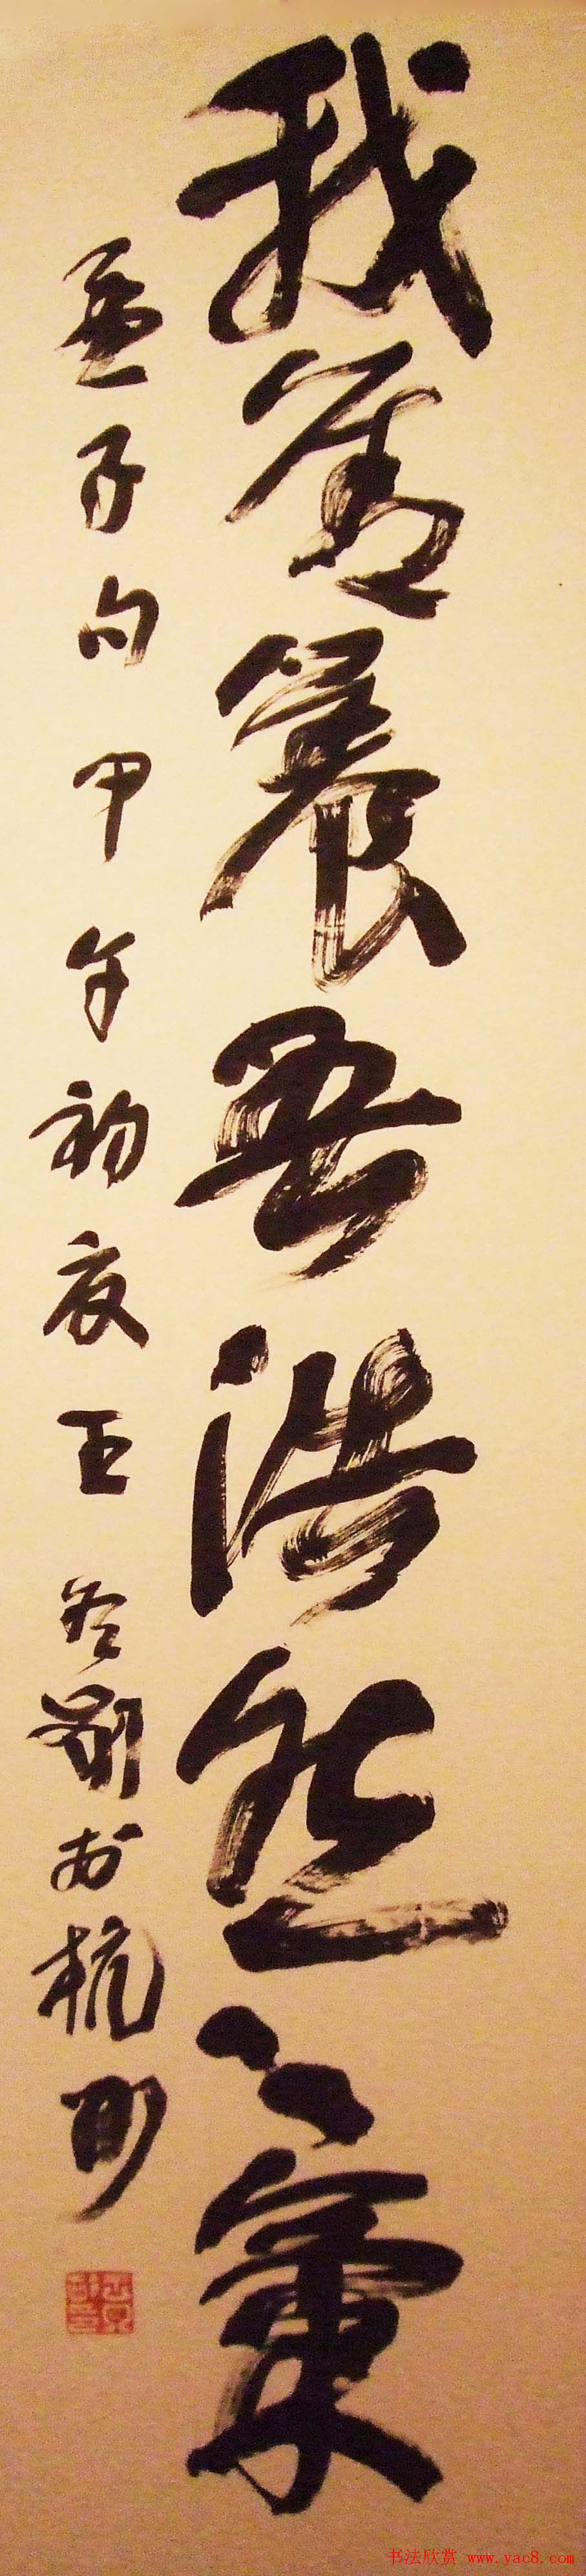 我善養吾浩然之氣
孟子句 甲午初夜 王冬齡於杭州
书法欣赏 www.yac8.com